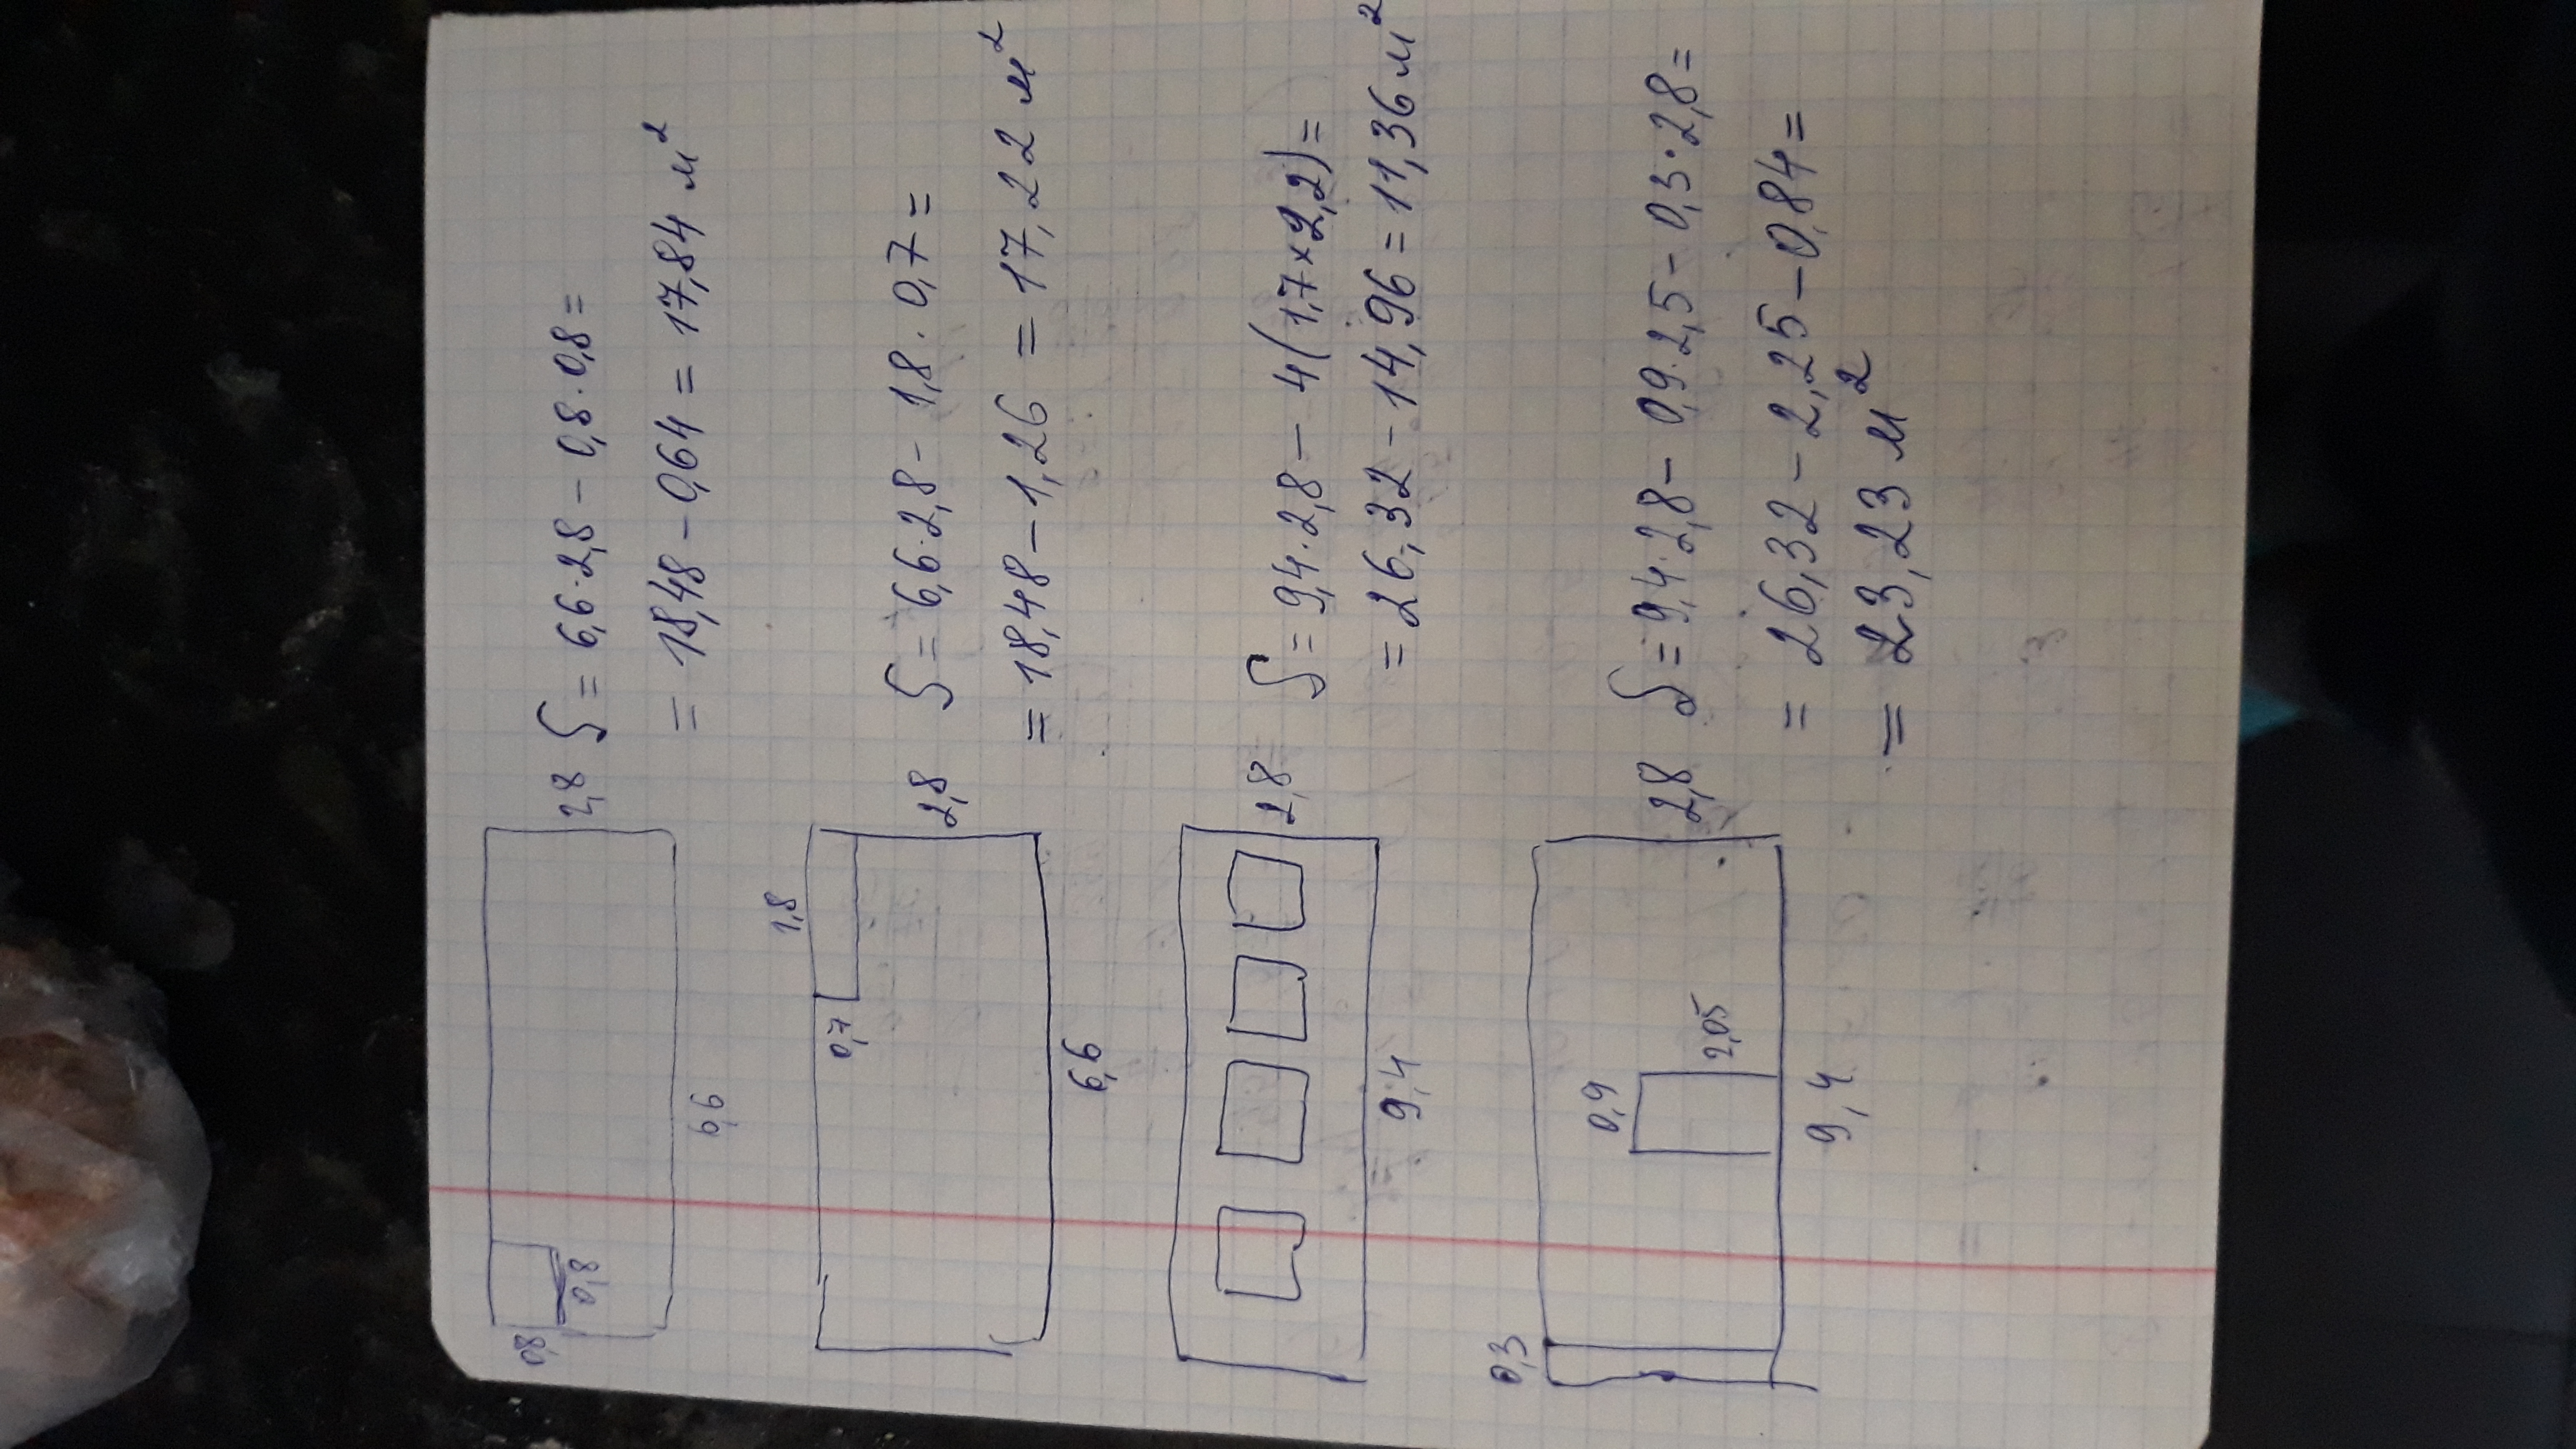 2,8 S = 6,6·2,8 – 0,8·0,8 =
= 18,48 – 0,64 = 17,84 м²
0,8
0,8
6,6
1,8
0,7
2,8 S = 6,6·2,8 – 1,8·0,7 =
= 18,48 – 1,26 = 17,22 м²
6,6
2,8 S = 9,4·2,8 – 4(1,7×2,2) =
= 26,32 – 14,96 = 11,36 м²
9,4
0,3
0,9
2,05
2,8 S = 9,4·2,8 – 0,9·2,5 – 0,3·2,8 =
= 26,32 – 2,25 – 0,84 =
= 23,23 м²
9,4